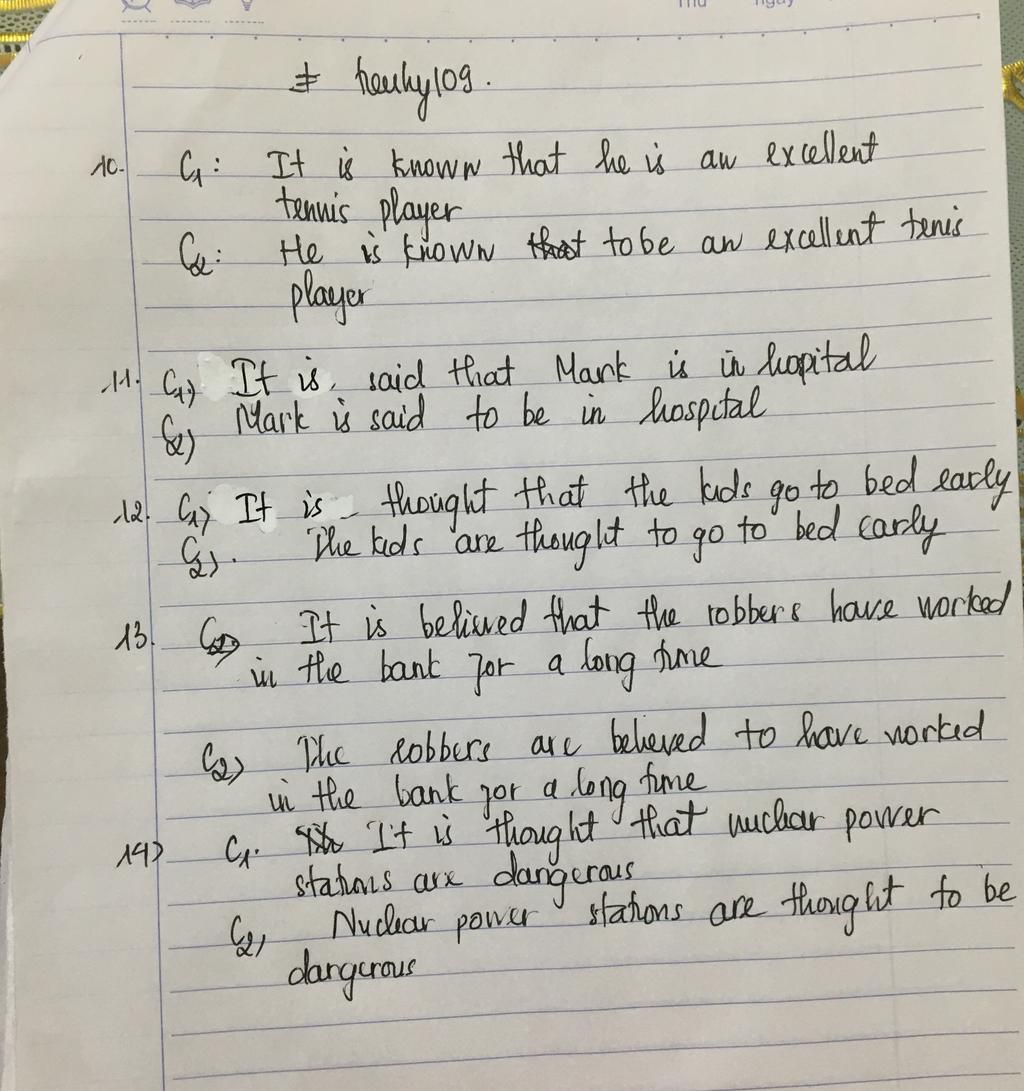 Thứ ngày
# heuhy109.
10. C1: It is known that he is an excellent
tennis player
C2: He is known that to be an excellent tenis
player
11. C1) It is said that Mark is in hopital
C2) Mark is said to be in hospital
12. C1) It is thought that the kids go to bed early
C2). The kids are thought to go to bed early
13. C1) It is believed that the robbers have worked
in the bank for a long time
C2) The robbers are believed to have worked
in the bank for a long time
14) C1. It is thought that nuclear power
stations are dangerous
C2) Nuclear power stations are thought to be
dangerous